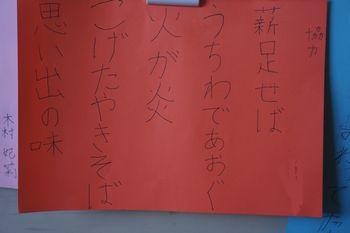 協力
薪足せば
うちわであおぐ
火が炎
こげたやきそば
思い出の味